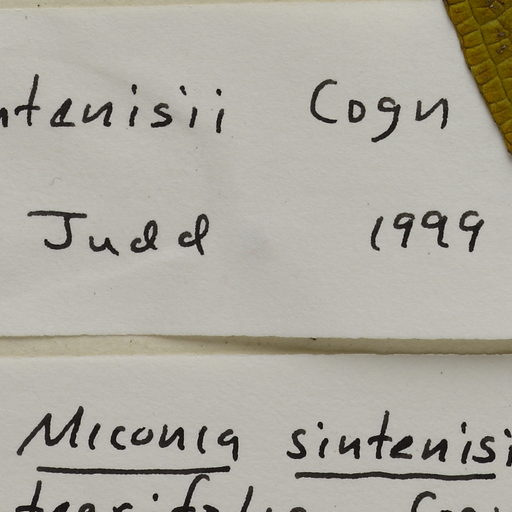 ntenisii Cogn
Judd 1999
Miconia sintenisi